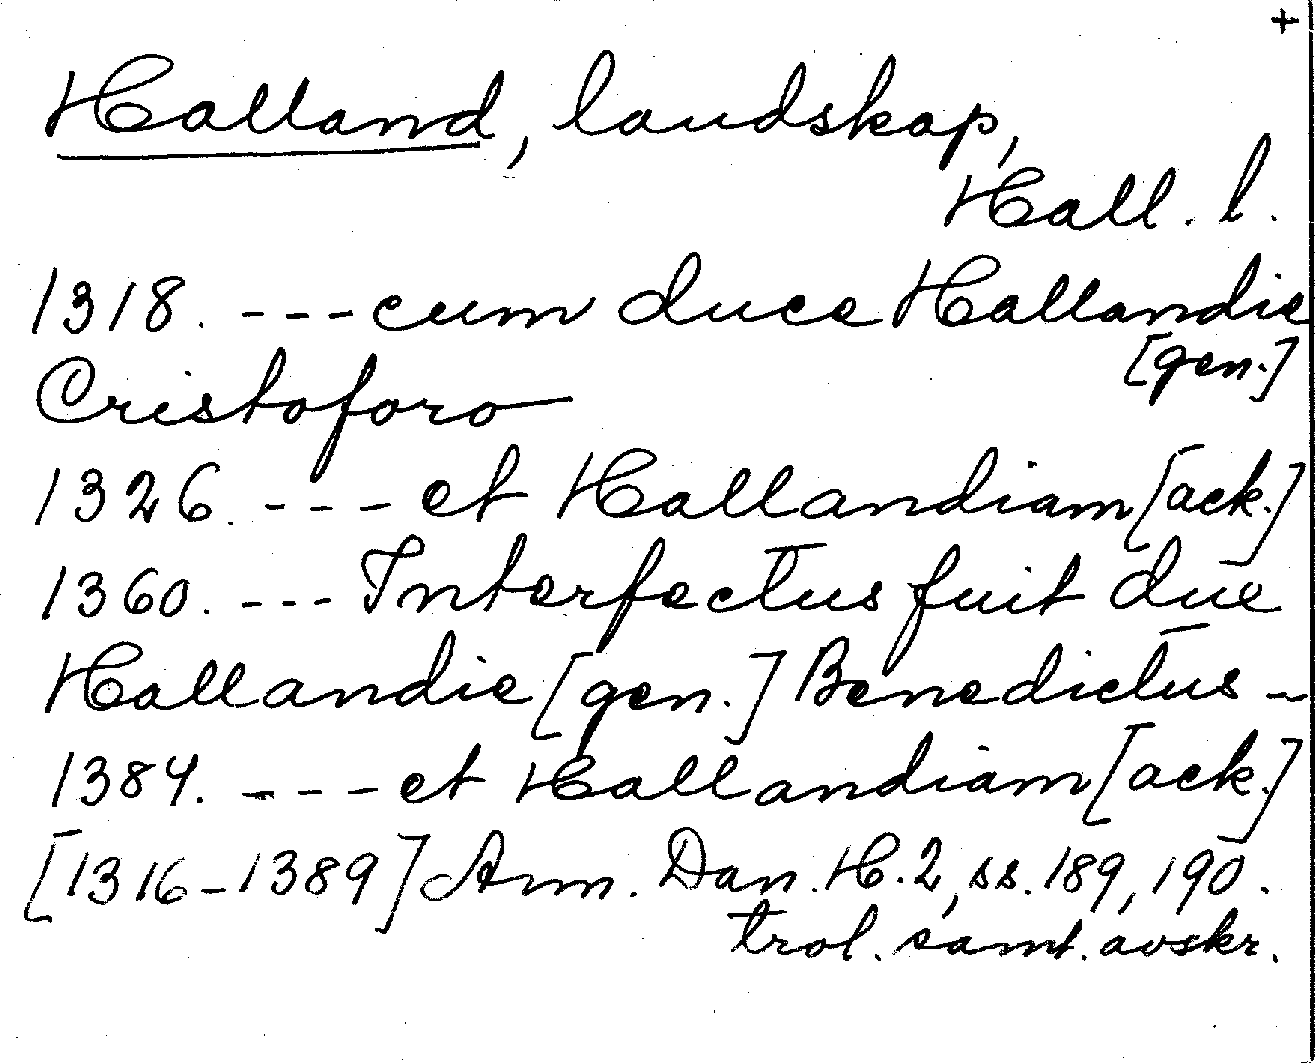 +
Halland, landskap,
Hall. l.
1318. --- cum duce Hallandie
[gen.]
Cristoforo
1326. --- et Hallandiam [ack.]
1360. --- Interfectus fuit due
Hallandie [gen.] Benedictus -
1384. --- et Hallandiam [ack.]
[1316-1389] Ann. Dan. H. 2, ss. 189, 190.
trol. samt. avskr.